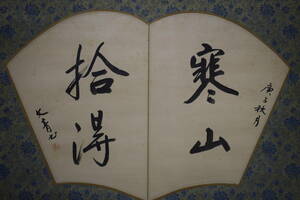 寒山
庚子秋月
拾得